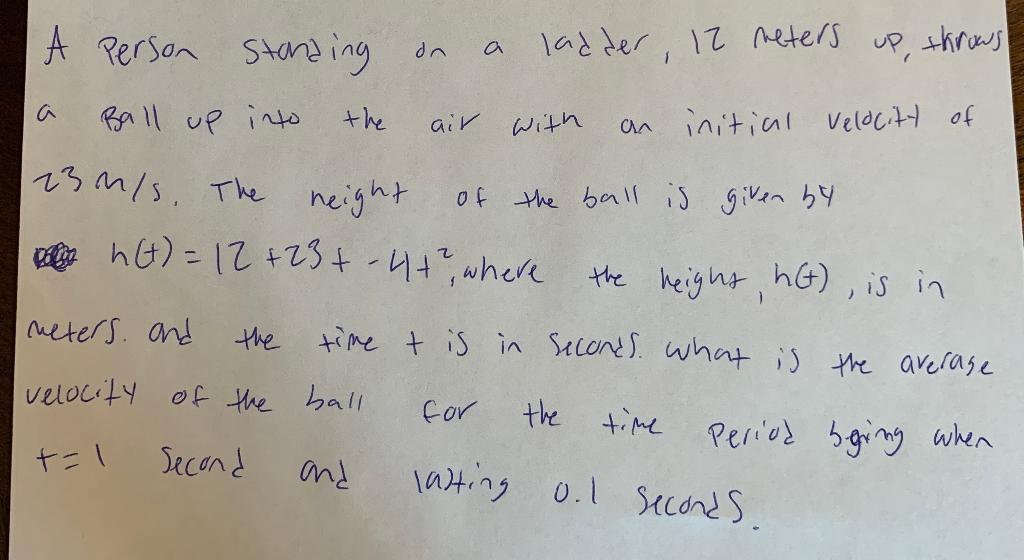 A Person standing on a ladder, 12 meters up, throws
a Ball up into the air with an initial velocity of
23 m/s. The height of the ball is given by
h(t) = 12 + 23t - 4t², where the height, h(t), is in
meters. and the time t is in seconds. what is the average
velocity of the ball for the time period beging when
t = 1 second and lasting 0.1 seconds.